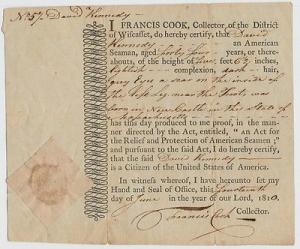 No. 57. David Kennedy
I FRANCIS COOK, Collector of the District
of Wiscasset, do hereby certify, that David
Kennedy an American
Seaman, aged forty four years, or there-
abouts, of the height of five feet 6 inches,
lightish complexion, dark hair,
grey eyes a scar on the inside of
the left leg near the foot, was
born in New Castle in the State of
Massachusetts
has this day produced to me proof, in the man-
ner directed by the Act, entitled, "an Act for
the Relief and Protection of American Seamen;"
and pursuant to the said Act, I do hereby certify,
that the said David Kennedy
is a Citizen of the United States of America.
In witness whereof, I have hereunto set my
Hand and Seal of Office, this fourteenth
day of June in the year of our Lord, 1810.
Francis Cook Collector.